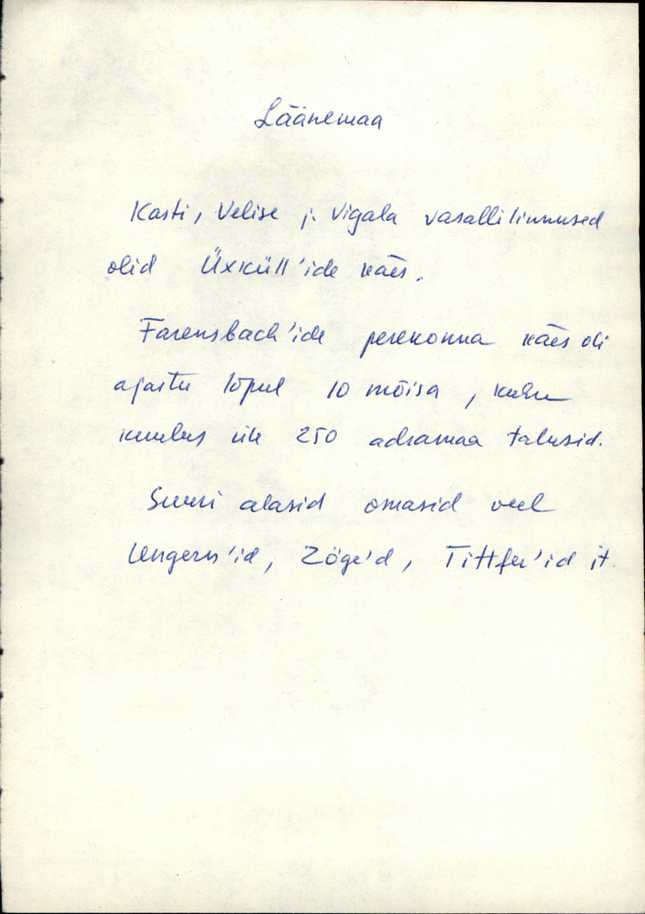 Läänemaa
Kasti, Velise j. Vigala vasallilinnused
olid Üxküll'ide käes.
Farensbach'ide perekonna käes oli
ajastu lõpul 10 mõisa, kuhu
kuulus üle 250 adramaa talusid.
Suuri alasid omasid veel
Ungern'id, Zöge'd, Tittfer'id jt.